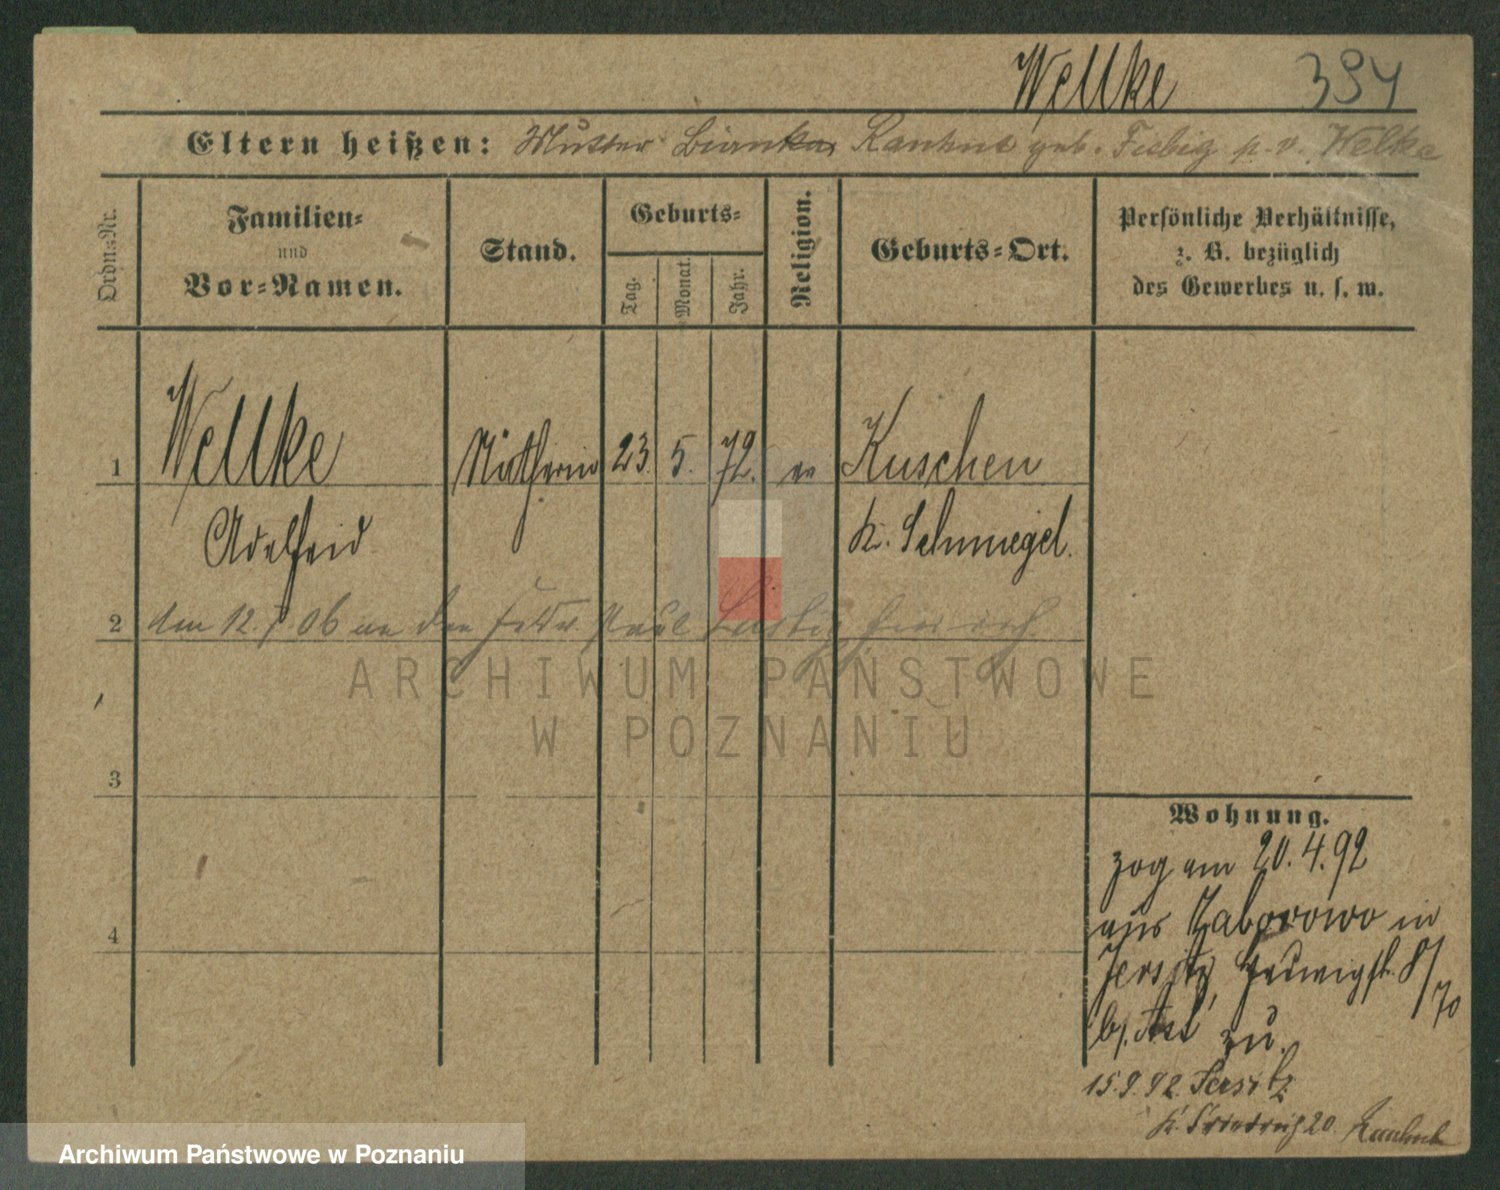 Wellke 394
Eltern heißen: Mutter Bianka Kanhut geb. Fiebig p. v. Welke
Ordn.-Nr.
Familien-
und
Vor-Namen.
Stand.
Geburts-
Tag.
Monat.
Jahr.
Religion.
Geburts-Ort.
Persönliche Verhältnisse,
z. B. bezüglich
des Gewerbes u. s. w.
1 Wellke Nätherin 23. 5. 72. ev Kuschen
Adelheid K. Schmiegel.
2 Am 12. 7. 06 an den Paul
3
4
Wohnung.
zog am 20.4.92
aus Zaborowo in
Jersitz, Hedwigst. 8/70
b/. zu.
15.9.92. Jersitz
K. Friedrich 20
ARCHIWUM PAŃSTWOWE
W POZNANIU
Archiwum Państwowe w Poznaniu